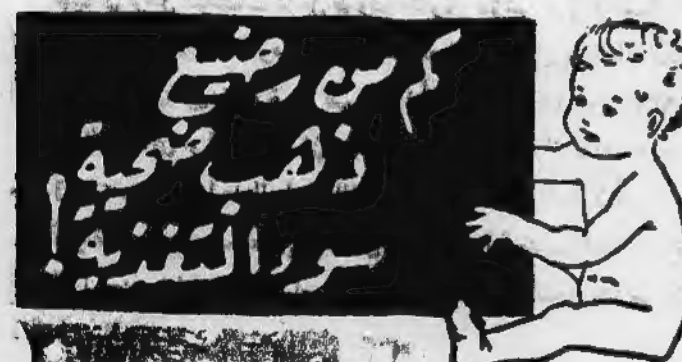 كم من رضيع
ذهب ضحية
سوء التغذية !